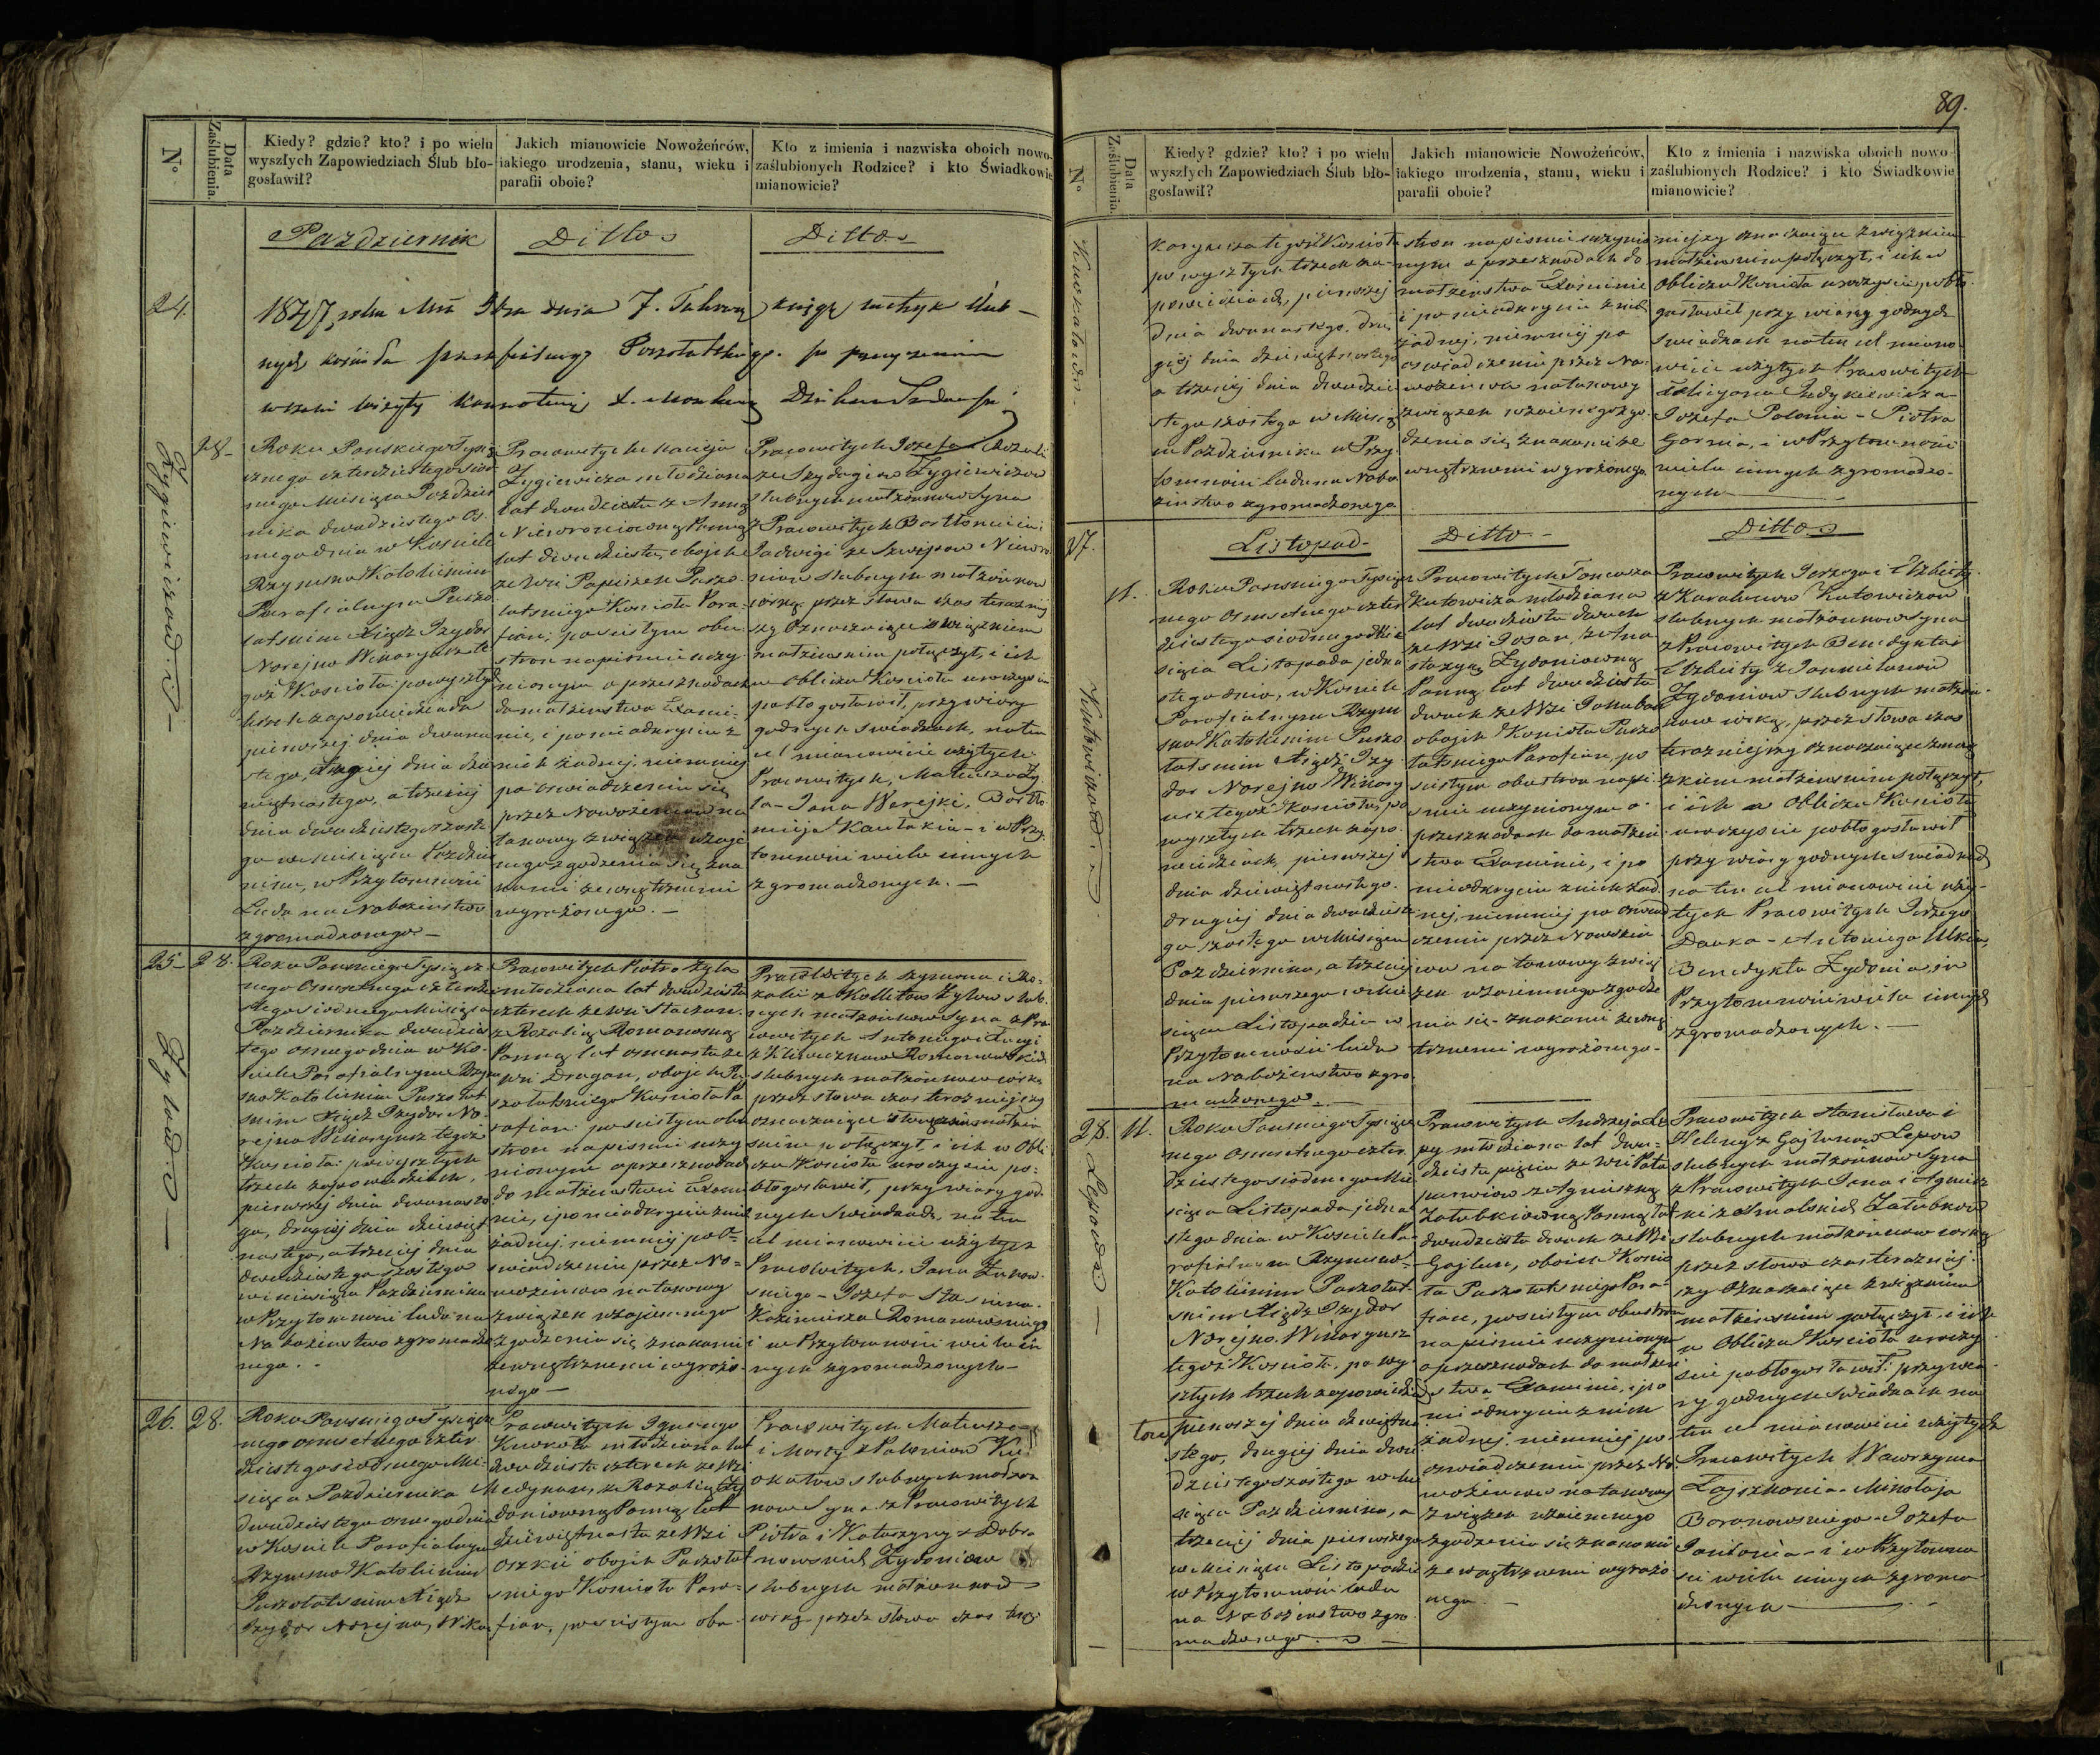 89.
N°
Data Zaślubienia.
Kiedy? gdzie? kto? i po wielu
wyszłych Zapowiedziach Ślub bło-
gosławił?
Jakich mianowicie Nowożeńców,
iakiego urodzenia, stanu, wieku i
parafii oboie?
Kto z imienia i nazwiska oboich nowo-
zaślubionych Rodzice? i kto Świadkowie
mianowicie?
Pazdziernik
Ditto
Ditto
24.
1847 roku dnia 7.
28
Zygiewiczow
Roku Panskiego Tysią
cznego czterdziestego siod
mego Miesiąca Pazdzier
nika dwudziestego Os
mego dnia w Kosciele
Rzymsko Katolickim
Parafialnym Puszo
łatskim Xiądz Izydor
Norejko Wikaryusz te
goż Kościoła po wyszłych
trzech zapowiedziach
pierwszej dnia dwuna
stego, drugiej dnia dzie
więtnastego, a trzeciej
dnia dwudziestego szoste
go w Miesiącu Pazdzier
niku, w Przytomności
Ludu na Nabożeństwo
zgromadzonego
Pracowitych Macieja
Zygiewicza młodziana
lat dwudziestu z Anną
Panną
lat dwudziestu, obojch
ze Wsi Puszo
łatskiego Kościoła Para
fian; po scistym obu
stron na piśmie uczy
nionym o przeszkodach
do małżeństwa Exami
nie, i po nieodkryciu z
nich żadnej, niemniej
po oswiadczeniu się
przez Nowożeńców na
takowy związek wzaje
mnego zgodzenia się zna
kami zewnętrznemi
wyrażonego.
Pracowitych Jozefa i Rozalii
Zygiewiczow
slubnych małżonkow Syna
z Pracowitych Bartłomieia i
Jadwigi
slubnych małżonkow
corkę przez słowa czas teraźniej
szy Oznaczaiące związkiem
małżeńskim połączył, i ich
w Obliczu Kościoła uroczyscie
pobłogosławił, przy wiary
godnych Swiadkach, na ten
cel mianowicie użytych
Pracowitych, Mateusza Zy
la - Jana Warejki, Bartło
mieja - i w Przy
tomności wielu innych
zgromadzonych.
25 28.
Zylow
Roku Panskiego Tysiącz
nego Osmsetnego czterdzie
stego siodmego Miesiąca
Pazdziernika dwudzies
tego osmego dnia w Ko
ściele Parafialnym Rzym
sko Katolickim Puszołat
skim Xiądz Izydor No
rejko Wikaryusz tegoż
Kościoła po wyszłych
trzech zapowiedziach,
pierwszej dnia dwunaste
go, drugiej dnia dziewięt
nastego, a trzeciej dnia
dwudziestego szostego
w miesiącu Pazdzierniku
w Przytomności ludu na
Nabożeństwo zgromadzo
nego.
Pracowitych Piotra Zyla
młodziana lat dwudziestu
czterech ze wsi
z Rozalią Romanowską
Panną lat osmnastu ze
wsi Dragan, obojch Pu
szołatskiego Kościoła Pa
rafian po scistym obu
stron na piśmie uczy
nionym o przeszkodach
do małżeństwa Exami
nie, i po nieodkryciu z nich
żadnej, niemniej po O
swiadczeniu przez No
wożeńcow na takowy
związek wzajemnego
zgodzenia się znakami
zewnętrznemi wyrażo
nego
Pracowitych Szymona i Ro
zalii z Zylow slub
nych małżonkow Syna z Pra
cowitych Antoniego i
Romanowskich
slubnych małżonkow corkę
przez słowa czas teraźniejszy
oznaczaiące związkiem małżeń
skim połączył, i ich w Obli
czu Kościoła uroczyscie po
błogosławił, przy wiary god
nych Swiadkach, na ten
cel mianowicie użytych
Pracowitych, Jana Zukow
skiego - Jozefa
Kazimierza Romanowskiego
i w Przytomności wielu in
nych zgromadzonych
26. 28.
Roku Panskiego Tysiącz
nego osmsetnego czter
dziestego siodmego Mie
siąca Pazdziernika
dwudziestego osmego dnia
w Kosciele Parafialnym
Rzymsko Katolickim
Puszołatskim Xiądz
Izydor Norejko, Wika
Pracowitych Ignacego
młodziana lat
dwudziestu czterech ze Wsi
z Rozalią Zy
doniowną Panną lat
dziewiętnastu ze Wsi
obojch Puszołat
skiego Kościoła Para
fian, po scistym obu
Pracowitych Mateusza
i Maryi z Poloniow
slubnych małżon
kow Syna z Pracowitych
Piotra i Katarzyny z Dobra
nowskich Zydoniow
slubnych małżonkow
corkę przez słowa czas teraz
N°
Data Zaślubienia.
Kiedy? gdzie? kto? i po wielu
wyszłych Zapowiedziach Ślub bło-
gosławił?
Jakich mianowicie Nowożeńców,
iakiego urodzenia, stanu, wieku i
parafii oboie?
Kto z imienia i nazwiska oboich nowo-
zaślubionych Rodzice? i kto Świadkowie
mianowicie?
karyusz tegoż Kościoła
po wyszłych trzech za
powiedziach, pierwszej
dnia dwunastego, dru
giej dnia dziewiętnastego
a trzeciej dnia dwudzie
stego szostego w Miesią
cu Pazdzierniku w Przy
tomności ludu na Nabo
żeństwo zgromadzonego
stron na piśmie uczynio
nym o przeszkodach do
małżeństwa Examinie
i po nieodkryciu z nich
żadnej, niemniej po
oswiadczeniu przez No
wożeńcow na takowy
związek wzaiemnego zgo
dzenia się znakami ze
wnętrznemi wyrażonego
niejszy oznaczaiące związkiem
małżeńskim połączył, i ich w
Obliczu Kościoła uroczyscie pobło
gosławił przy wiary godnych
swiadkach na ten cel miano
wicie użytych Pracowitych
Felicyana
Jozefa Polonia - Piotra
i w Przytomności
wielu innych zgromadzo
nych
27.
Listopad
Ditto
Ditto
11.
Kutowiczow
Roku Panskiego Tysiącz
nego Osmsetnego czter
dziestego siodmego Mie
siąca Listopada jedena
stego dnia, w Kosciele
Parafialnym Rzym
sko Katolickim Puszo
łatskim Xiądz Izy
dor Norejko Wikary
usz tegoż Kościoła, po
wyszłych trzech zapo
wiedziach, pierwszej
dnia dziewiętnastego.
drugiej dnia dwudzieste
go szostego w Miesiącu
Pazdzierniku, a trzeciej
dnia pierwszego w Mie
siącu Listopadzie w
Przytomności ludu
na Nabożeństwo zgro
madzonego
Pracowitych Tomasza
Kutowicza młodziana
lat dwudziestu dwuch
ze Wsi z Ana
stazyą Zydoniowną
Panną lat dwudziestu
dwuch ze Wsi
obojch Kościoła Puszo
łatskiego Parafian, po
scistym obu stron na pi
smie uczynionym o
przeszkodach do małżeń
stwa Examinie, i po
nieodkryciu z nich żad
nej, niemniej po oswiad
czeniu przez Nowożeń
cow na takowy zwią
zek wzaiemnego zgodze
nia się znakami zewnę
trznemi wyrażonego.
Pracowitych Jerzego i Elzbiety
z Karaliunow Kutowiczow
slubnych małżonkow Syna
z Pracowitych Benedykta i
Elzbiety
Zydoniow slubnych małżon
kow corkę, przez słowa czas
teraźniejszy oznaczaiące zwią
zkiem małżeńskim połączył,
i ich w Obliczu Kościoła
uroczyscie pobłogosławił
przy wiary godnych swiadkach
na ten cel mianowicie uży
tych Pracowitych Jerzego
Antoniego
Benedykta Zydonia, i w
Przytomności wielu innych
zgromadzonych.
28. 11.
Lepow
Roku Panskiego Tysiącz
nego Osmsetnego czter
dziestego siodmego Mie
siąca Listopada jedena
stego dnia w Kosciele Pa
rafialnym Rzymsko
Katolickim Puszołat
skim Xiądz Izydor
Norejko. Wikaryusz
tegoż Kościoła, po wy
szłych trzech zapowiedziach
pierwszej dnia dziewiętna
stego, drugiej dnia dwu
dziestego szostego w Mie
siącu Pazdzierniku, a
trzeciej dnia pierwszego
w Miesiącu Listopadzie
w Przytomności ludu
na Nabożeństwo zgro
madzonego
Pracowitych Andrzeja Le
py młodziana lat dwu
dziestu pięciu ze Wsi
z Agnieszką
Panną lat
dwudziestu dwuch ze Wsi
Gajlun, oboich Kościo
ła Puszołatskiego Para
fian, po scistym obu stron
na piśmie uczynionym
o przeszkodach do małżeń
stwa Examinie, i po
nieodkryciu z nich
żadnej niemniej po
oswiadczeniu przez No
wożeńcow na takowy
związek wzaiemnego
zgodzenia się znakami
zewnętrznemi wyrażo
nego.
Pracowitych Stanisława i
Heleny z Gajlunow Lepow
slubnych małżonkow Syna
z Pracowitych Jana i Agniesz
ki
slubnych małżonkow corkę
przez słowa czas teraźniej
szy Oznaczaiące związkiem
małżeńskim połączył, i ich
w Obliczu Kościoła uroczy
scie pobłogosławił przy wia
ry godnych Swiadkach na
ten cel mianowicie użytych
Pracowitych Wawrzyna
Mikołaja
Baranowskiego - Jozefa
i w Przytomno
sci wielu innych zgroma
dzonych